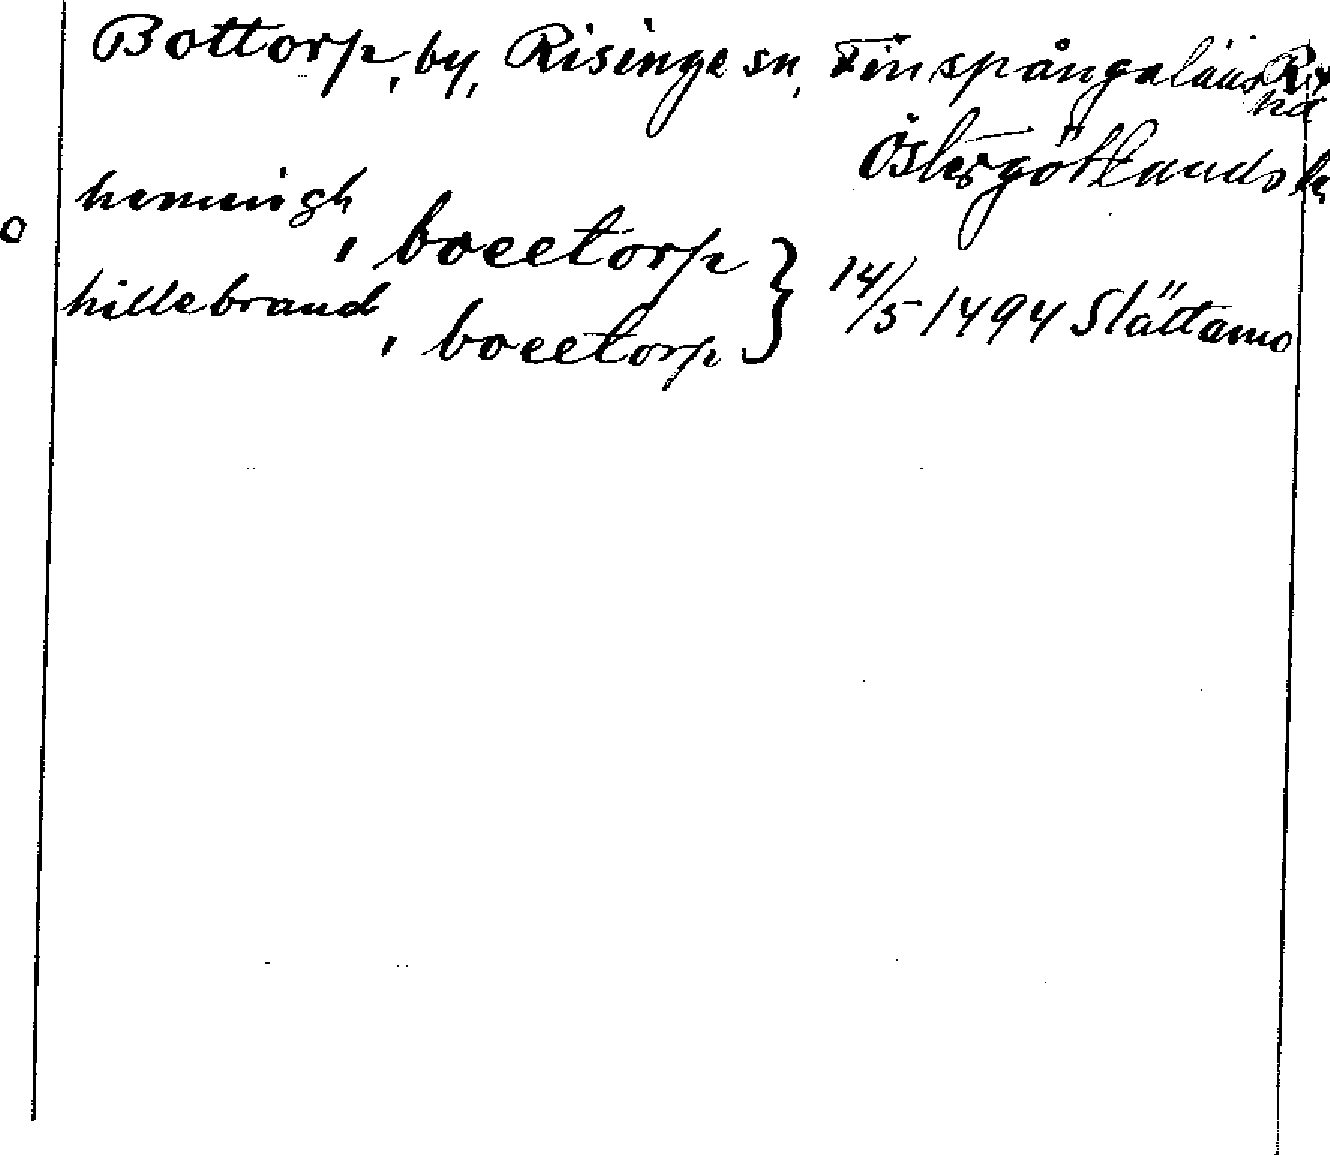 Bottorp, by, Risinge sn, Finspångaläns
hd
Östergötlands
henningh, boeetorp
hillebrand, boeetorp } 14/5 1494 Slättamo